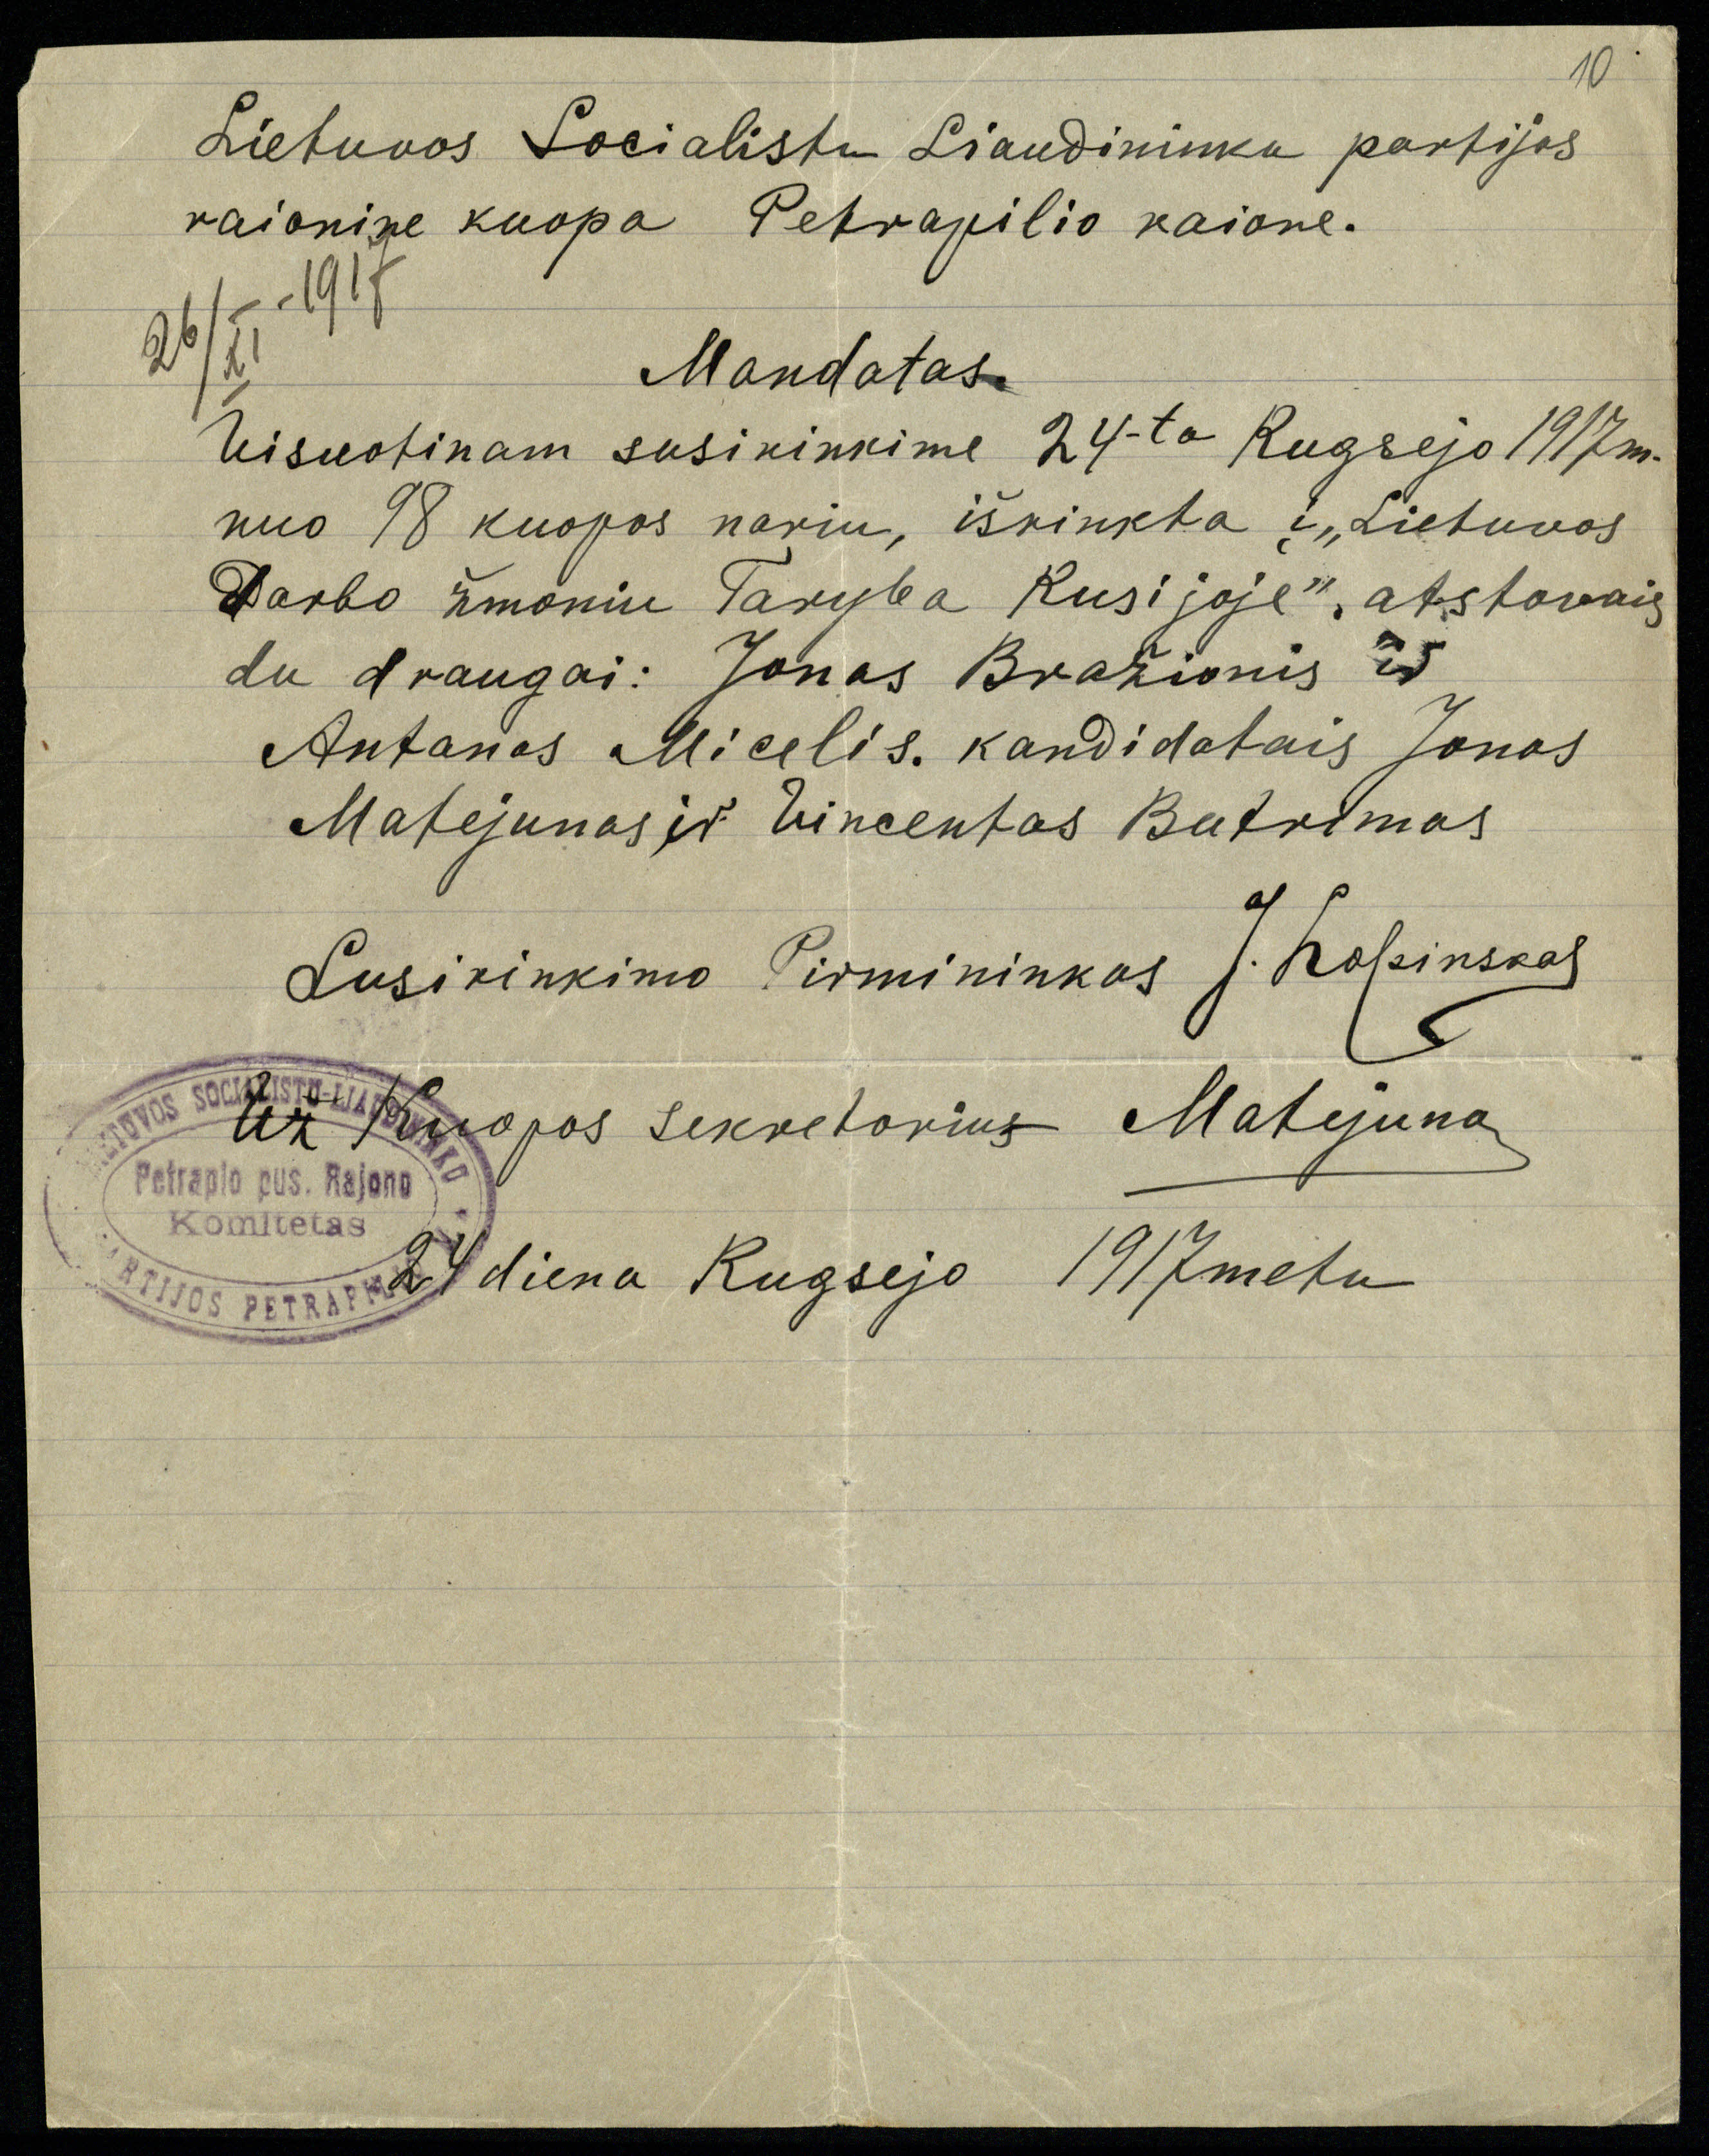 10
Lietuvos Socialistu Liaudininku partijos
raionine kuopa Petrapilio raione.
26/XI-1917
Mandatas.
Visuotinam susirinkime 24-ta Rugsejo 1917m.
nuo 98 kuopos nariu, išrinkta į „Lietuvos
Darbo žmoniu Taryba Rusijoje", atstovais
du draugai: Jonas Bražionis ir
Antanas Micelis. kandidatais Jonas
Matejunas ir Vincentas Butrimas
Susirinkimo Pirmininkas J.
Už Kuopos sekretorius Matejuna
24 diena Rugsejo 1917 metu
LIETUVOS SOCIALISTU-LIAUDININKU
Petraplo pus. Rajono
Komitetas
PARTIJOS